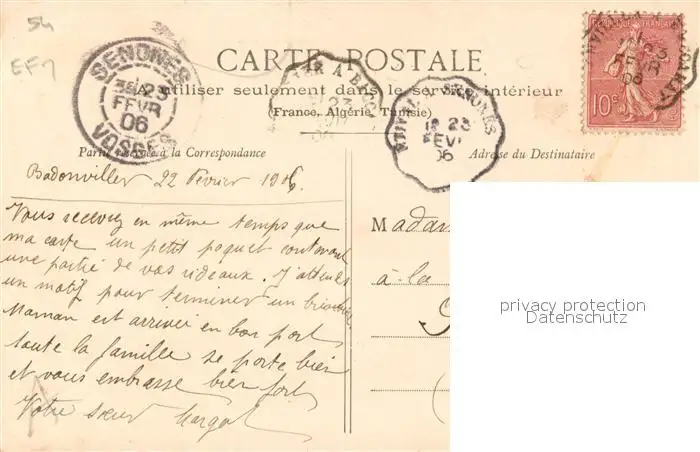 54
EF7
CARTE POSTALE
A utiliser seulement dans le service intérieur
(France, Algérie, Tunisie)
SENONES
23
FEVR
06
VOSGES
23
FEVR
06
SENONES
23
FEVR
06
REPUBLIQUE FRANÇAISE
10c
Partie réservée à la Correspondance
Adresse du Destinataire
Badonviller 22 Février 1906.
Vous recevrez en même temps que
ma carte un petit paquet contenant
une partie de vos rideaux. J'attends
un motif pour terminer un
Maman est arrivée en bon port
toute la famille se porte bien
et vous embrasse bien fort
Votre sœur Margot
Madam
à la
privacy protection
Datenschutz